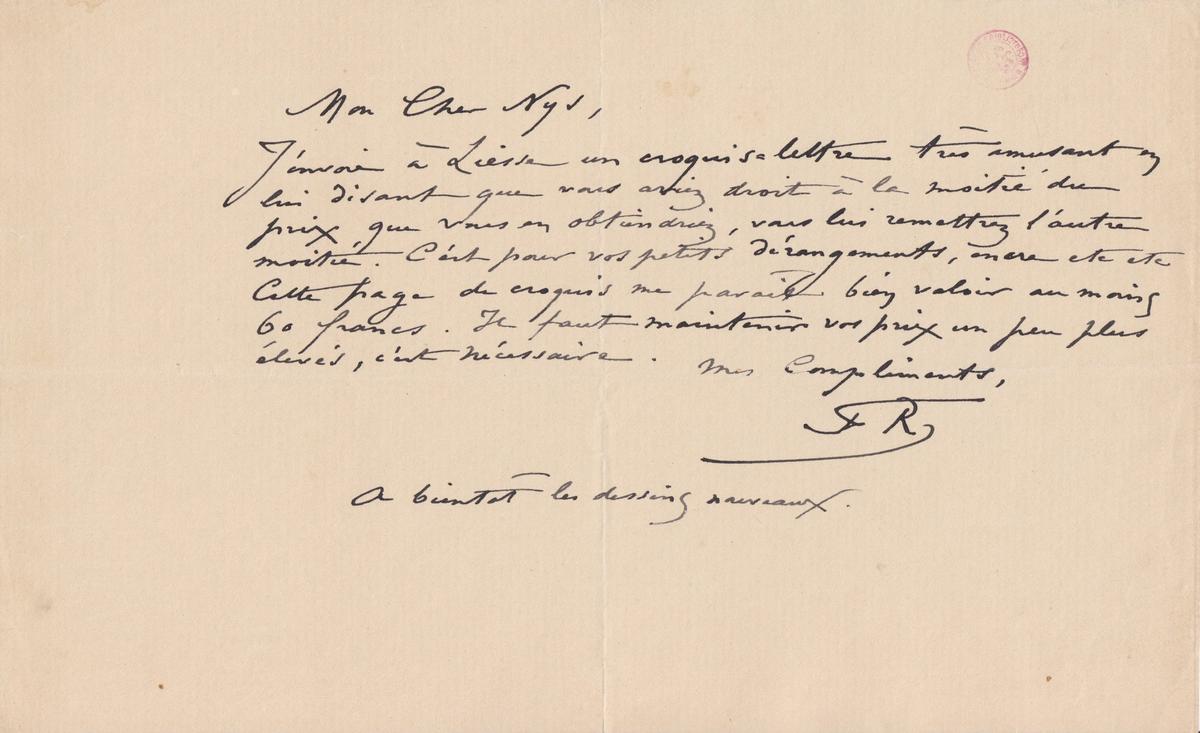 Mon Cher Nys,
J'envoie à Liesse un croquis-lettre très amusant en
lui disant que vous aviez droit à la moitié du
prix que vous en obtiendriez, vous lui remettrez l'autre
moitié. C'est pour vos petits dérangements, encre etc etc
Cette page de croquis me parait bien valoir au moins
60 francs. Il faut maintenir vos prix un peu plus
élevés, c'est nécessaire.
Mes Compliments,
FR
A bientôt les dessins nouveaux.